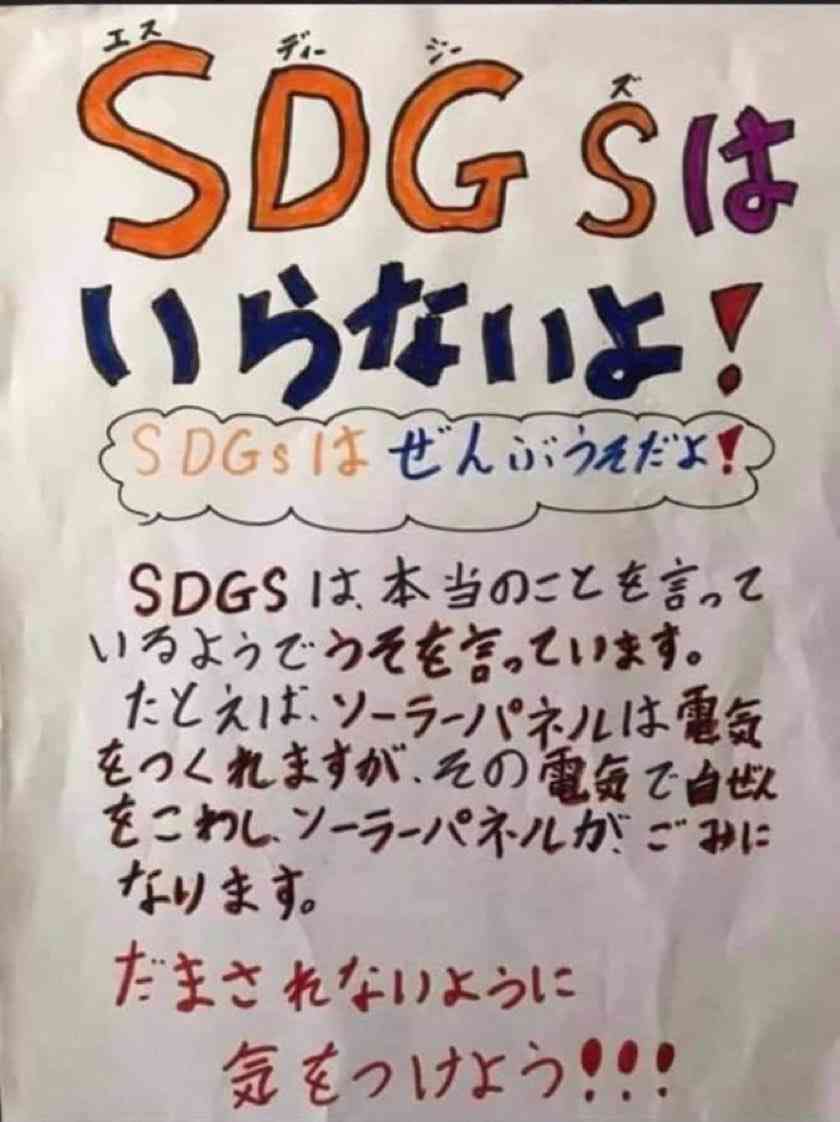 エス ディー ジー ズ
SDGsは
いらないよ!
SDGsはぜんぶうそだよ!
SDGSは、本当のことを言って
いるようでうそを言っています。
たとえば、ソーラーパネルは電気
をつくれますが、その電気で自ぜん
をこわし、ソーラーパネルが、ごみに
なります。
だまされないように
気をつけよう!!!